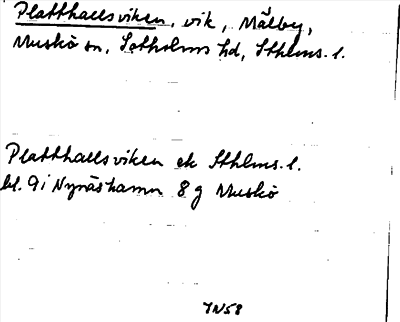 Platthallsviken, vik, Mälby,
Muskö sn, Sotholms hd, Sthlms. l.
Platthallsviken ek Sthlms. l.
bl. 9i Nynäshamn 8 g Muskö
IN58